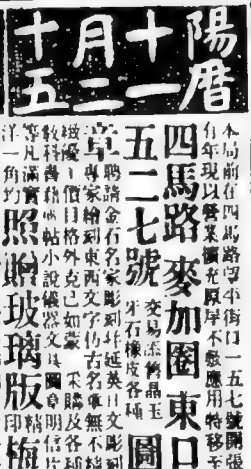 陽曆
十一
月二
十五
本局前在四馬路望平街口一五七號開張
有年現以營業擴充原岸不敷應用特移至
四馬路麥加圈東口
五二七號
交易添舊晶玉
牙石橡皮各種
圖
章
聘請金石名家彫刻并延英日文彫刻
專家繪刻東西文字仿古名章無不精
緻優價目格外克已如蒙
采購及各種
教科書籍碑帖小說儀器文具圖章明信片
等凡滿實
洋一角均
照贈玻璃版
精印
梅